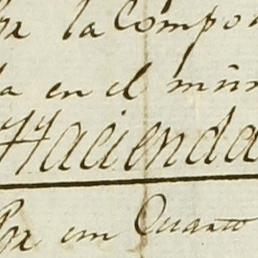 Por la Compo
da en el mũn
Hacienda
Por um Quanto